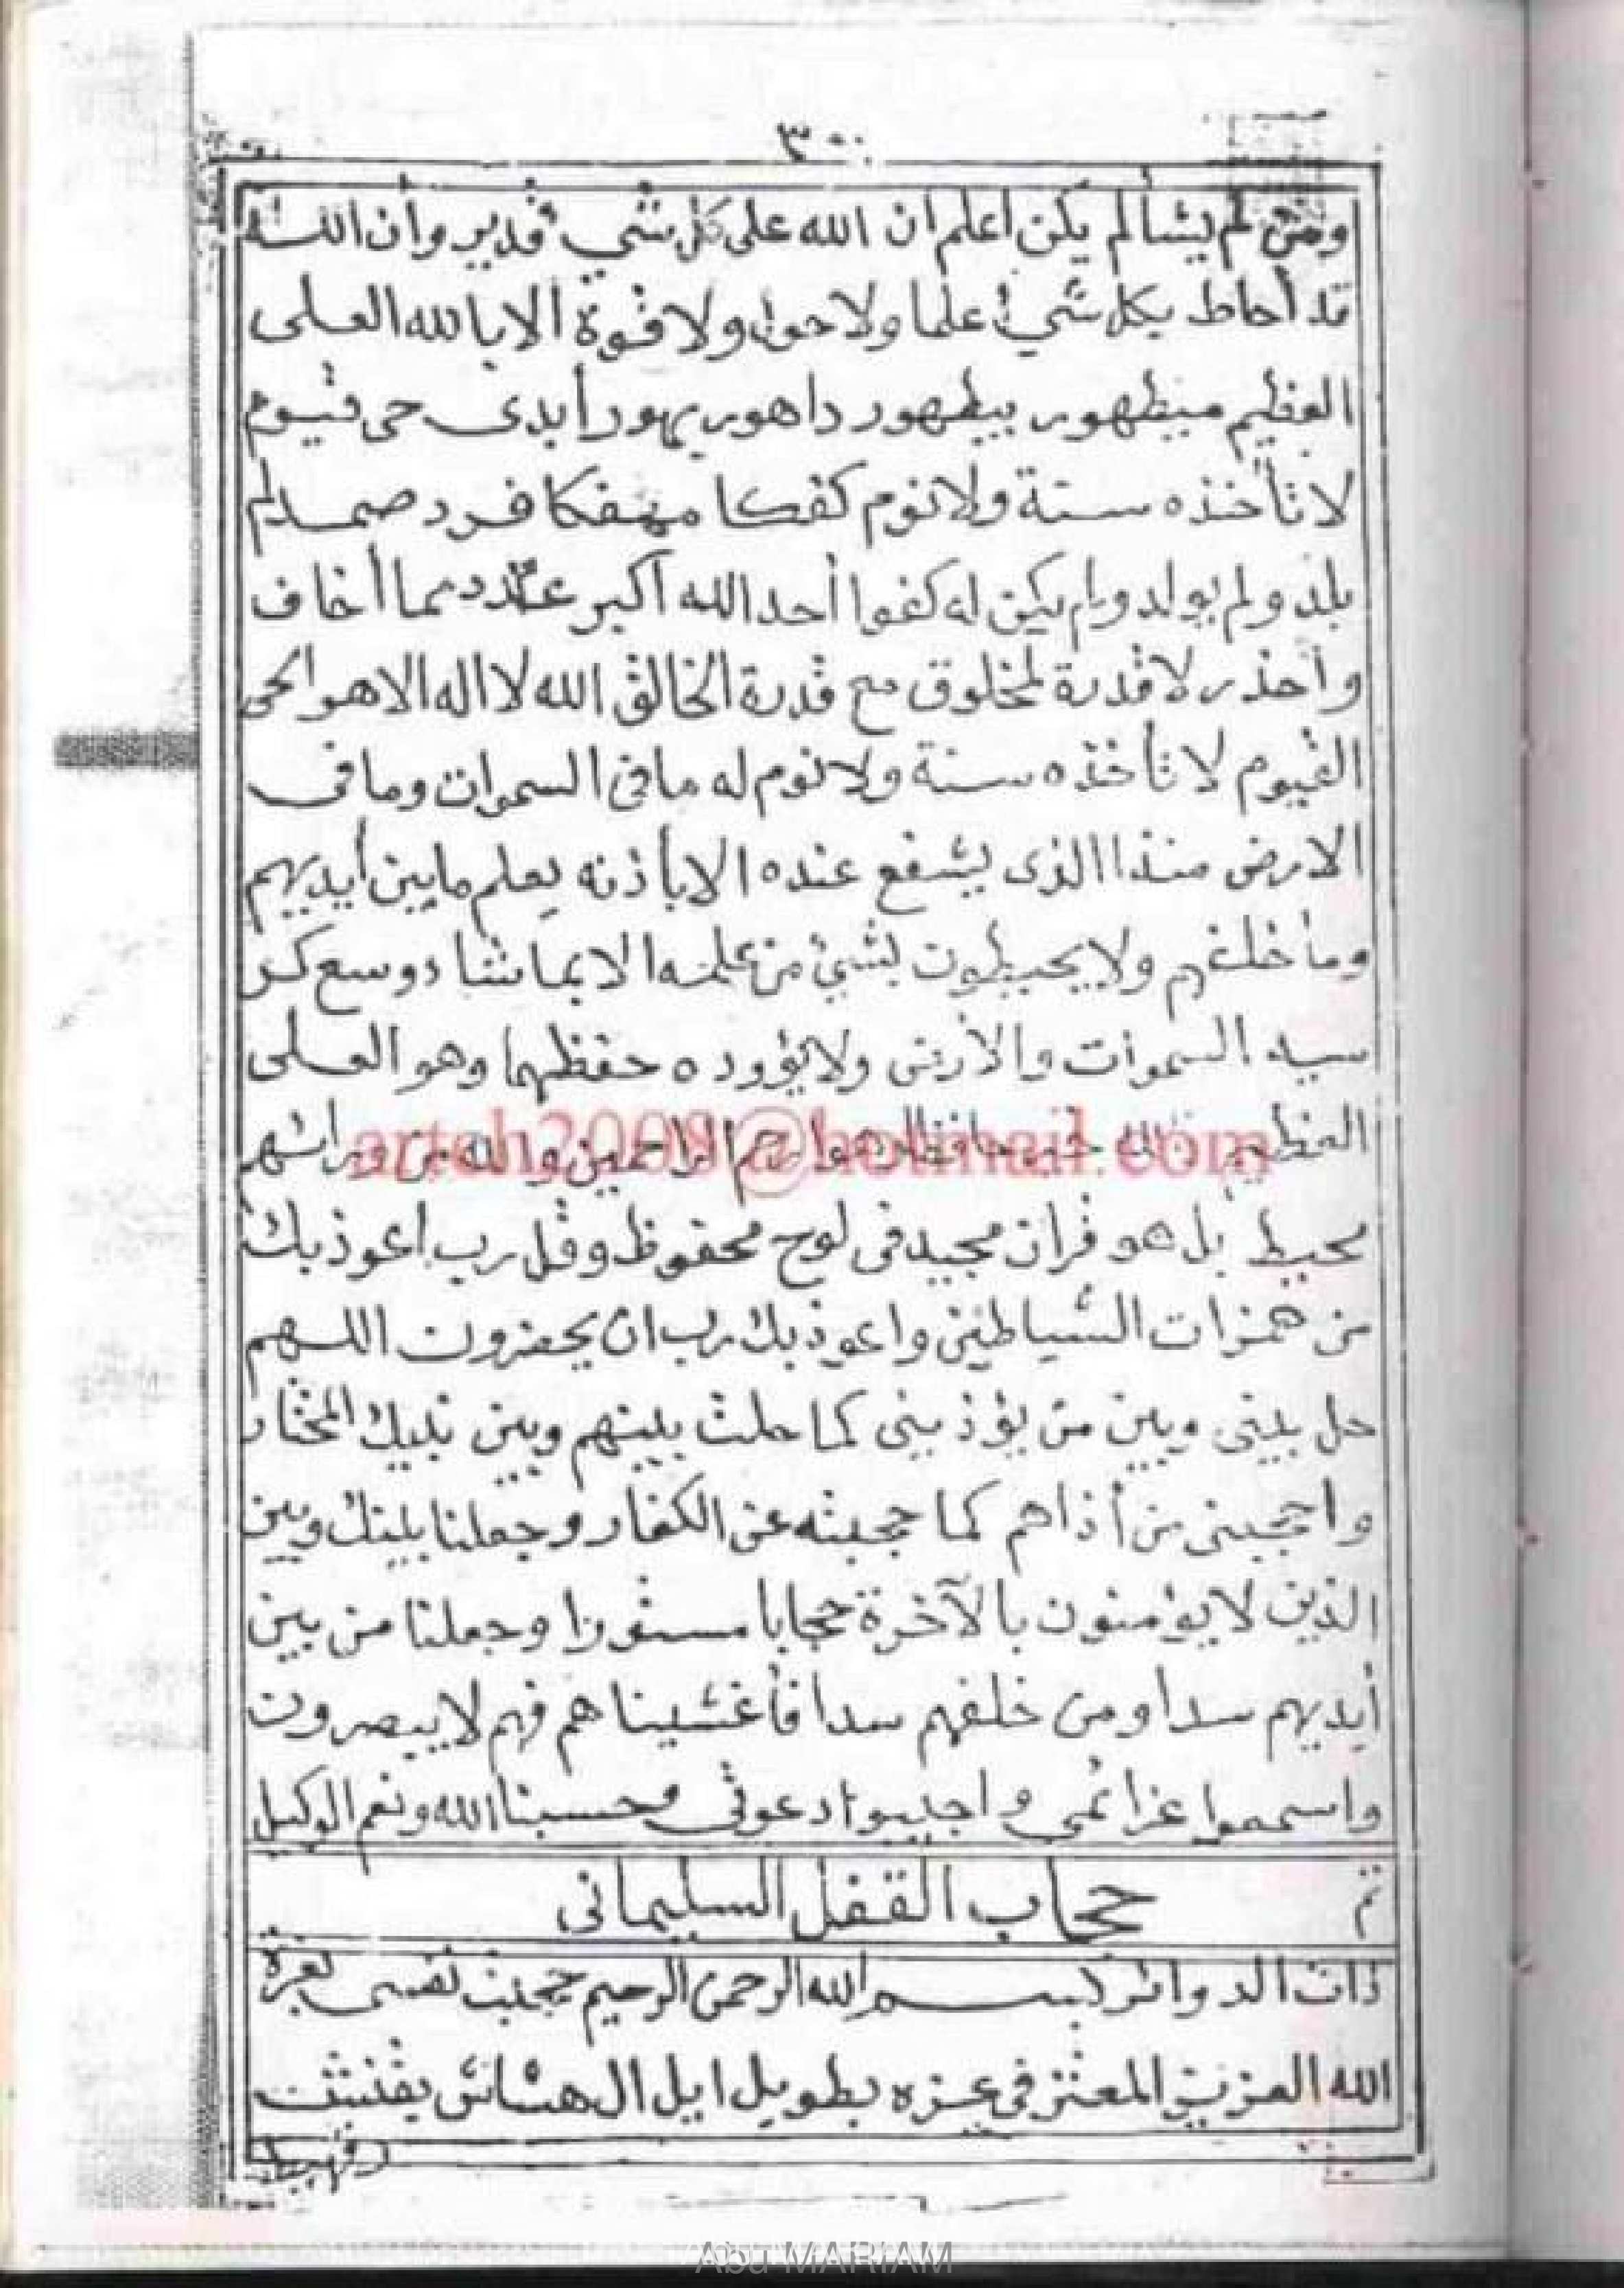 ٣٠
ومن لم يشألم يكن اعلم ان الله على كل شي قدير وان الله
قد أحاط بكل شيء علما ولا حول ولا قوة الا بالله العلى
العظيم ميطهور بيطهور داهور يهور أبدى حى قيوم
لا تأخذه سنة ولا نوم كفكا مهفكا فرد صمد لم
يلد ولم يولد ولم يكن له كفوا أحد الله اكبر عدد مما أخاف
وأحذر لا قدرة لمخلوق مع قدرة الخالق الله لا اله الا هو الحى
القيوم لا تأخذه سنة ولا نوم له مافى السموات وما فى
الارض منذا الذى يشفع عنده الا بأذنه يعلم مابين أيديهم
وما خلفهم ولا يحيطون بشيئ من علمه الا بما شا دوسع كر
سيه السموات والارض ولا يؤوده حفظهما وهو العلى
العظيم فالله خير حافظا وهو ارحم الراحمين والله من ورائهم
محيط بل هو قران مجيد فى لوح محفوظ وقل رب اعوذ بك
من همزات الشياطين واعوذ بك رب ان يحضرون اللهم
حل بينى وبين من يؤذينى كما حلت بينهم وبين نبيك المختار
واحجبنى من أذاهم كما حجبته عن الكفار وجعلنا بينك وبين
الذين لا يؤمنون بالآخرة حجابا مستورا وجعلنا من بين
أيديهم سدا ومن خلفهم سدا فأغشيناهم فهم لا يبصرون
واسمعوا عزائمي واجيبوا دعوتى وحسبنا الله ونعم الوكيل
تم حجاب القفل السليمانى
ذات الدوائر بسم الله الرحمن الرحيم حجبت نفسى بعزة
الله العزيز المعتز فى عزه بطويل ايل ال هشاش
arteh2008@hotmail.com
Abu MARIAM